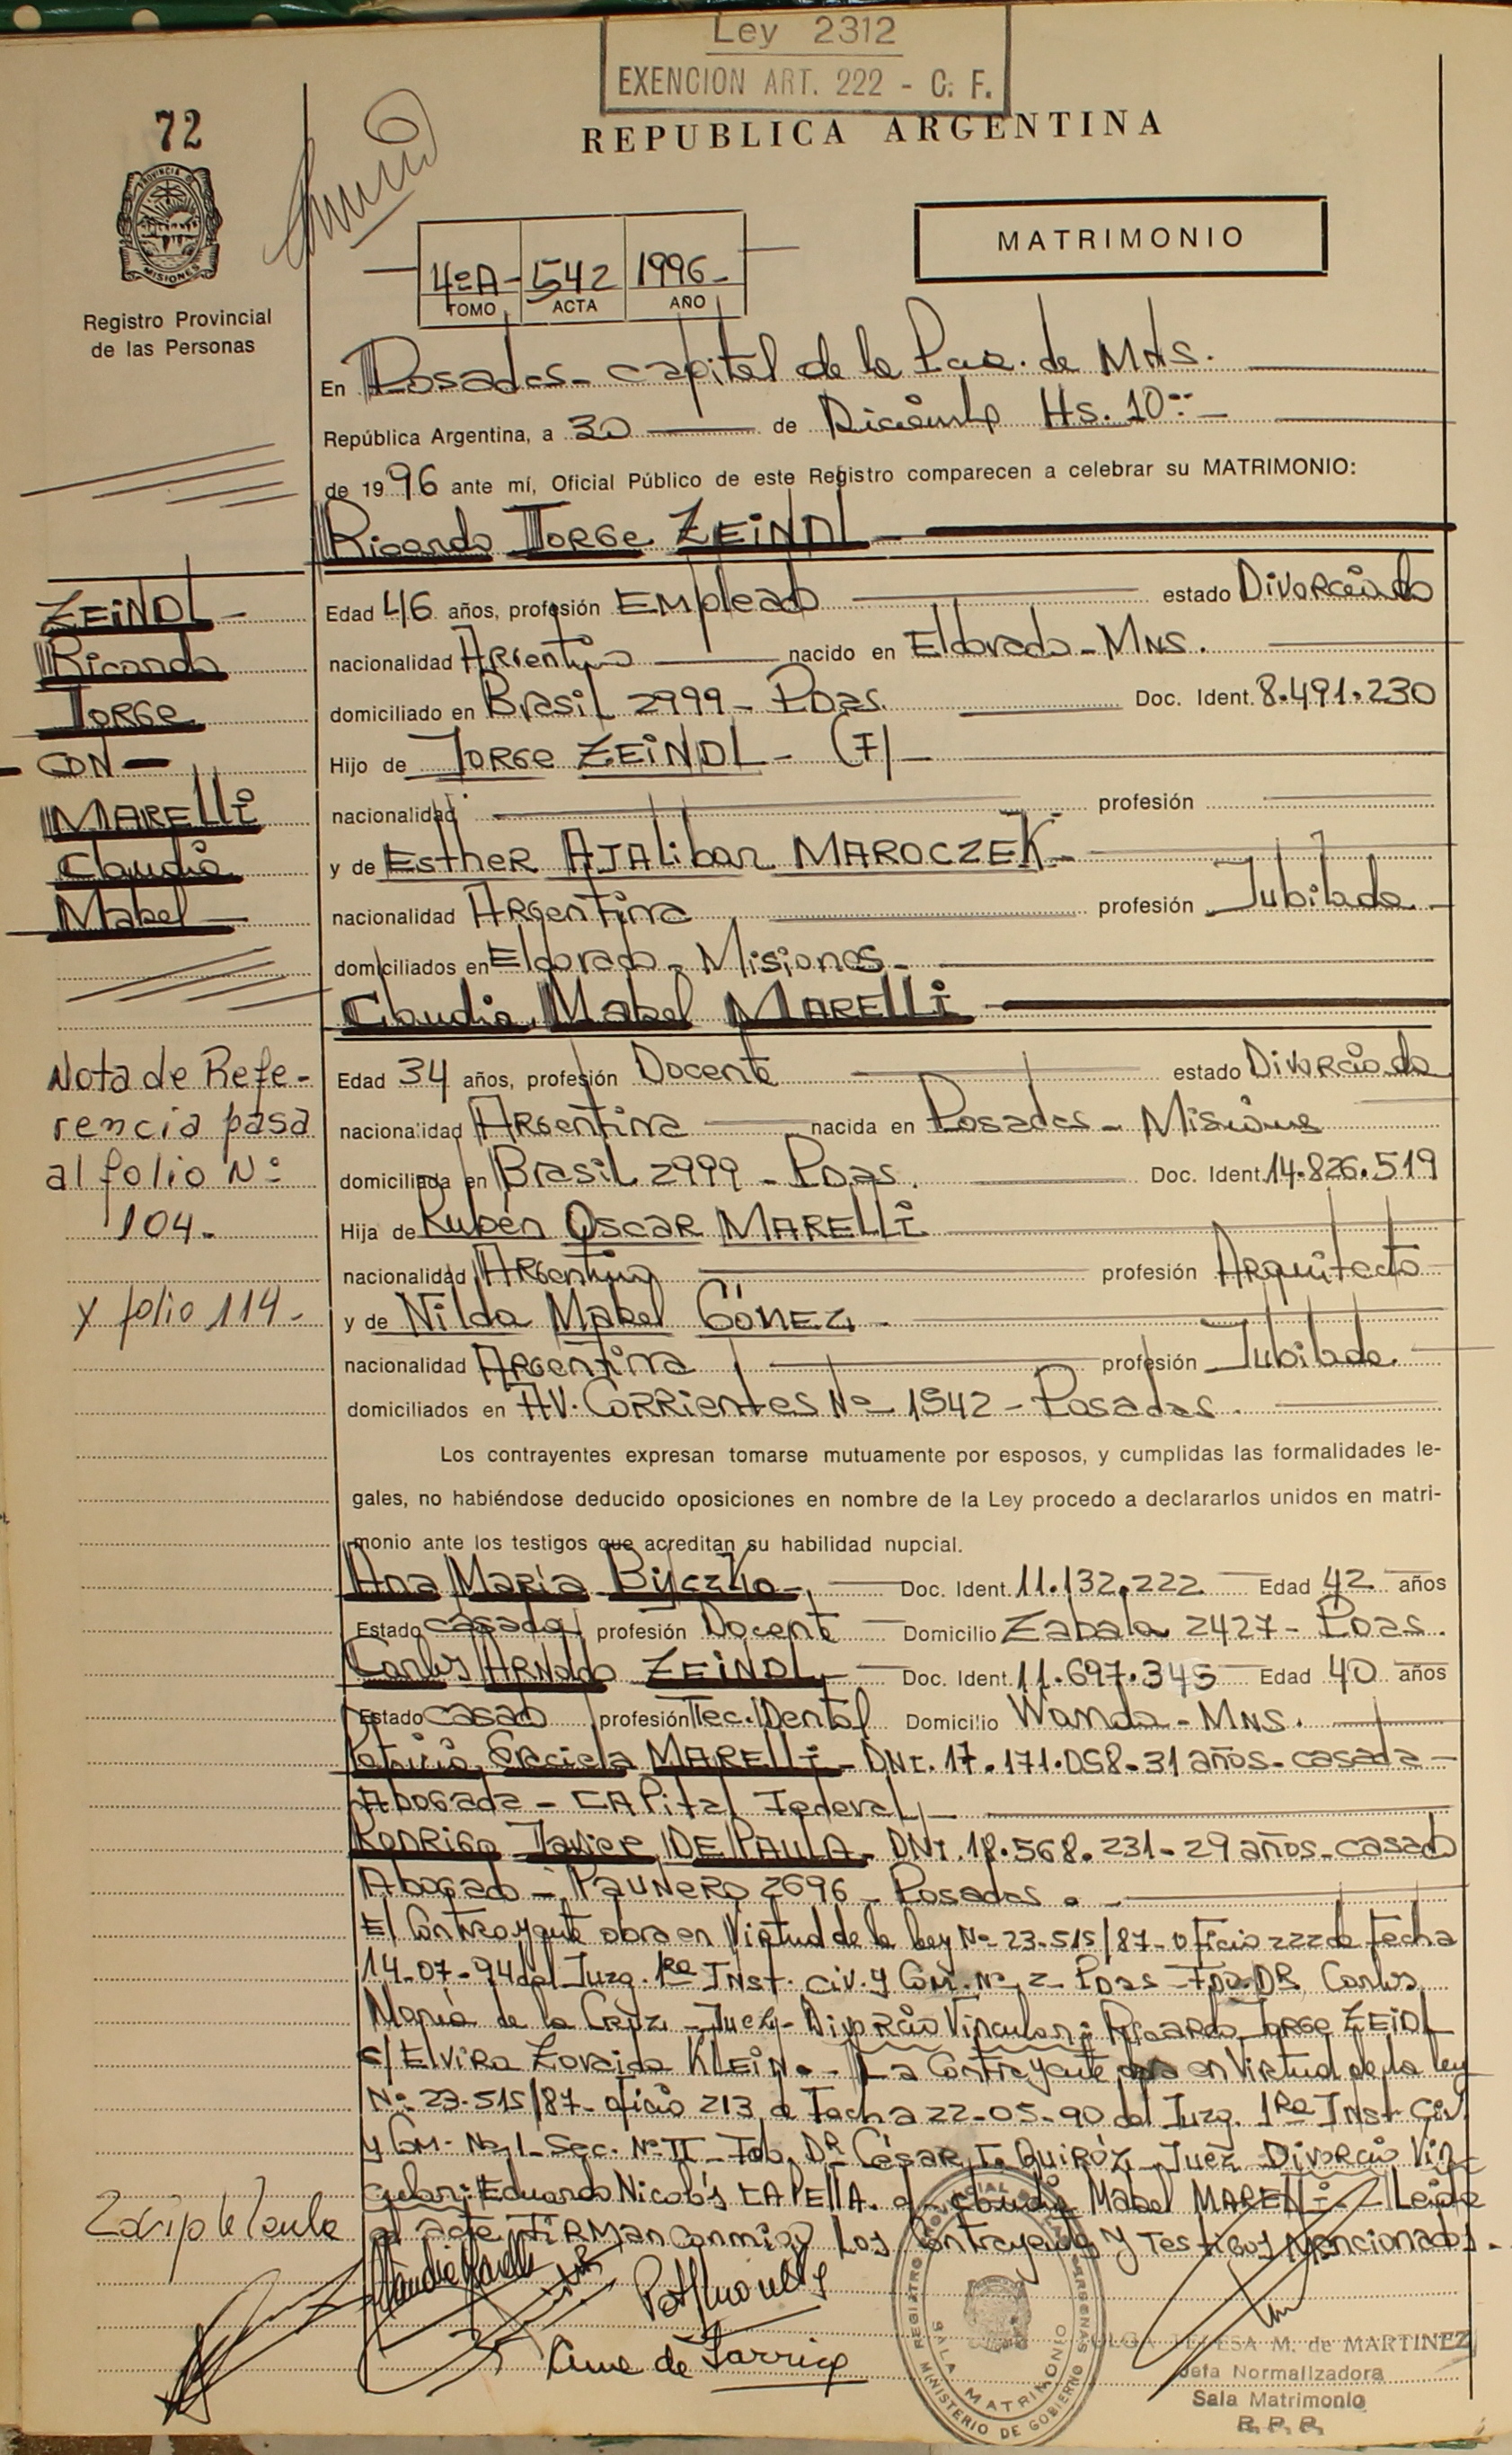 Ley 2312
EXENCION ART. 222 - C. F.
72
REPUBLICA ARGENTINA
PROVINCIA DE
MISIONES
MATRIMONIO
4ºA- 542 1996-
TOMO ACTA AÑO
Registro Provincial
de las Personas
En Posadas- capital de la Pcia. de MNS.
República Argentina, a 30 de Diciembre Hs. 10:-
de 1996 ante mí, Oficial Público de este Registro comparecen a celebrar su MATRIMONIO:
Ricardo Jorge ZEINDL-
ZEINDL-
Ricardo
Jorge
- CON -
MARELLI
Claudia
Mabel
Edad 46 años, profesión Empleado estado Divorciado
nacionalidad Argentino nacido en Eldorado - MNS.
domiciliado en Brasil 2999 - Pdas. Doc. Ident. 8.491.230
Hijo de Jorge ZEINDL - (F)-
nacionalidad profesión
y de Esther AJALibar MAROCZEK-
nacionalidad Argentina profesión Jubilada
domiciliados en Eldorado - Misiones-
Claudia Mabel MARELLI
Nota de Refe-
rencia pasa
al folio Nº
104-
y folio 114-
Edad 34 años, profesión Docente estado Divorciada
nacionalidad Argentina nacida en Posadas - Misiones
domiciliada en Brasil 2999 - Pdas. Doc. Ident. 14.826.519
Hija de Rubén Oscar MARELLI
nacionalidad Argentino profesión Arquitecto
y de Nilda Mabel GÓMEZ-
nacionalidad Argentina profesión Jubilada
domiciliados en AV. CORRientes Nº 1542 - Posadas.
Los contrayentes expresan tomarse mutuamente por esposos, y cumplidas las formalidades le-
gales, no habiéndose deducido oposiciones en nombre de la Ley procedo a declararlos unidos en matri-
monio ante los testigos que acreditan su habilidad nupcial.
Ana María Byczko- Doc. Ident. 11.132.222 Edad 42 años
Estado casada profesión Docente Domicilio Zabala 2427 - Pdas.
Carlos Arnoldo ZEINDL- Doc. Ident. 11.697.345 Edad 40 años
Estado casado profesión Tec. Dental Domicilio Wanda - MNS.
Patricia Graciela MARELLI- DNI. 17.171.058-31 años- casada-
Abogada - CAPital Federal-
Rodrigo Javier DE PAULA- DNI. 18.568.231-29 años- casado
Abogado - PAUNERO 2696 - Posadas.-
El Contrayente obra en Virtud de la ley Nº 23.515/87- oficio 222 de fecha
14-07-94 del Juzg. 1ra Inst. Civ. y Com. Nº 2 - Pdas - Fdo. DR. Carlos
María de la Cruz - Juez - Divorcio Vincular: Ricardo Jorge ZEIDL
c/ Elvira Zoraida KLEIN.- La Contrayente obra en Virtud de la ley
Nº 23.515/87- oficio 213 de Fecha 22-05-90 del Juzg. 1ra Inst. Civ.
y Com. Nº 1 - Sec. Nº II - Fdo. Dr. César I. QUIRÓZ - Juez Divorcio Vin
cular: Eduardo Nicolás CAPELLA. c/ Claudia Mabel MARELLI - Leida
el acta FIRMAN conmigo los Contrayentes y Testigos Mencionados.-
Claudia Marelli
REGISTRO PROVINCIAL DE LAS PERSONAS
SALA MATRIMONIO
MINISTERIO DE GOBIERNO
OLGA TERESA M. de MARTINEZ
Jefa Normalizadora
Sala Matrimonio
R. P. P.